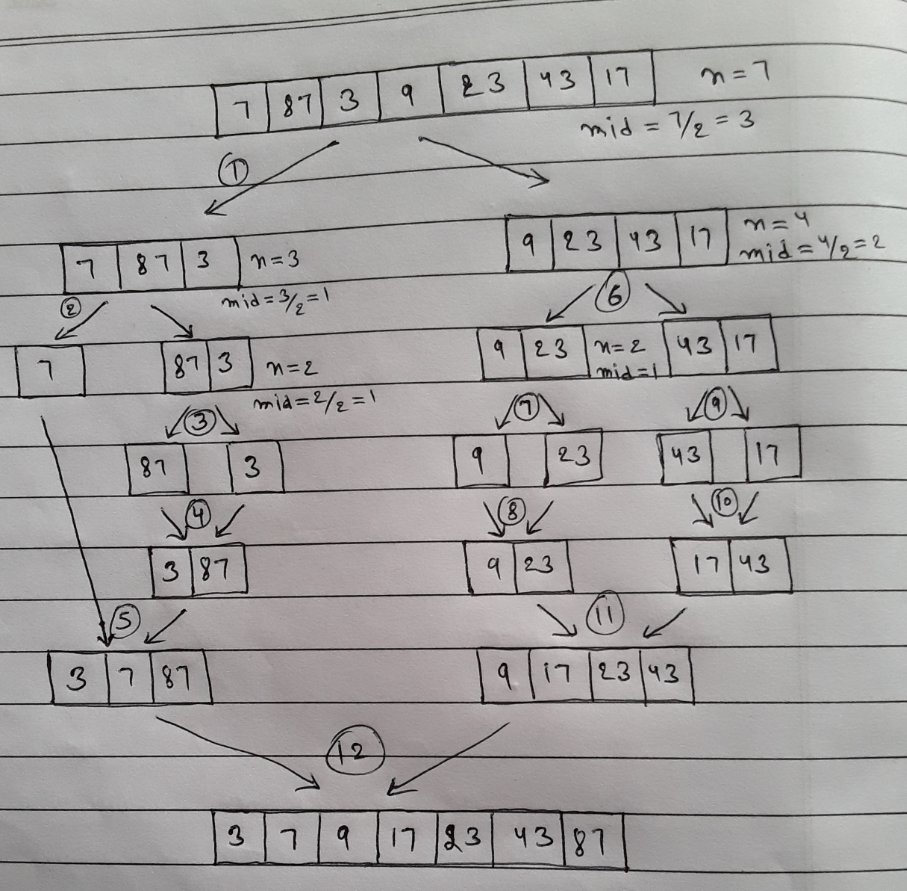 7 87 3 9 23 43 17 n=7
mid = 7/2 = 3
①
7 87 3 n=3
mid=3/2=1
9 23 43 17 n=4
mid=4/2=2
② ⑥
7 87 3 n=2
mid=2/2=1
9 23 n=2 43 17
mid=1
③ ⑦ ⑨
87 3 9 23 43 17
④ ⑧ ⑩
3 87 9 23 17 43
⑤ ⑪
3 7 87 9 17 23 43
⑫
3 7 9 17 23 43 87